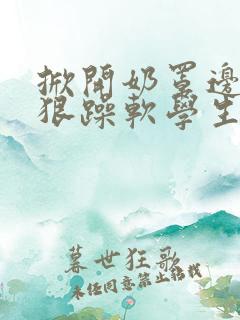 掀開奶罩邊
狠躁軟學生
暮世狂歌
未经同意禁止转载